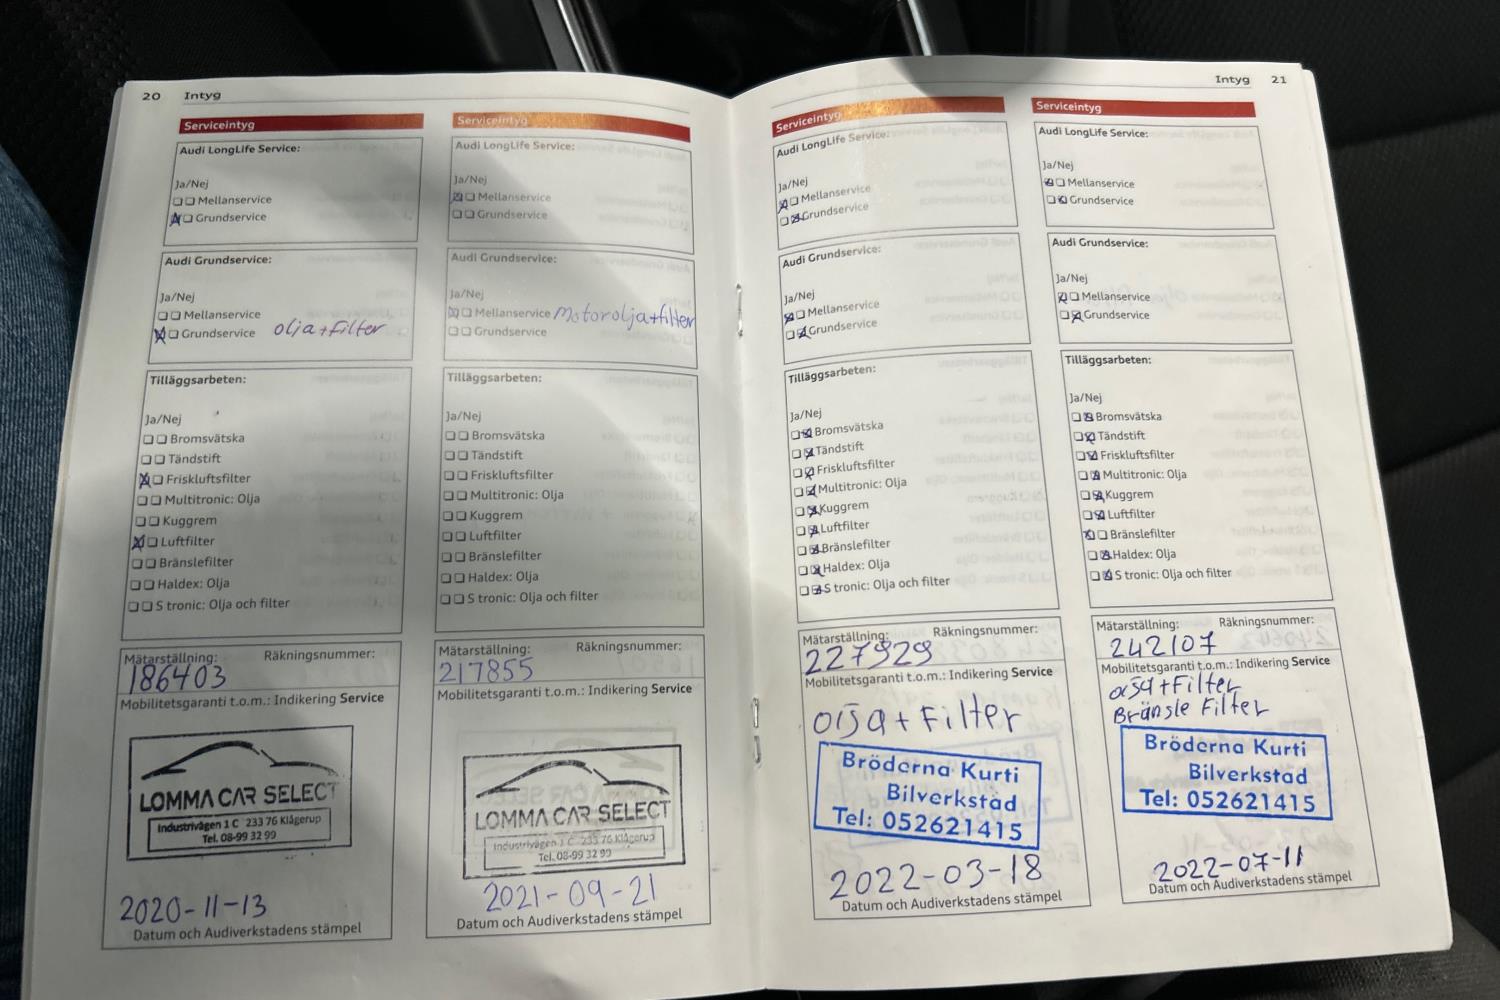 20 Intyg
Serviceintyg
Audi LongLife Service:
Ja/Nej
Mellanservice
Grundservice
Audi Grundservice:
Ja/Nej
Mellanservice
Grundservice olja+filter
Tilläggsarbeten:
Ja/Nej
Bromsvätska
Tändstift
Friskluftsfilter
Multitronic: Olja
Kuggrem
Luftfilter
Bränslefilter
Haldex: Olja
S tronic: Olja och filter
Mätarställning: Räkningsnummer:
186403
Mobilitetsgaranti t.o.m.: Indikering Service
LOMMA CAR SELECT
Industrivägen 1 C 233 76 Klågerup
Tel. 08-99 32 99
2020-11-13
Datum och Audiverkstadens stämpel
Serviceintyg
Audi LongLife Service:
Ja/Nej
Mellanservice
Grundservice
Audi Grundservice:
Ja/Nej
Mellanservice Motorolja+filter
Grundservice
Tilläggsarbeten:
Ja/Nej
Bromsvätska
Tändstift
Friskluftsfilter
Multitronic: Olja
Kuggrem
Luftfilter
Bränslefilter
Haldex: Olja
S tronic: Olja och filter
Mätarställning: Räkningsnummer:
217855
Mobilitetsgaranti t.o.m.: Indikering Service
LOMMA CAR SELECT
Industrivägen 1 C 233 76 Klågerup
Tel. 08-99 32 99
2021-09-21
Datum och Audiverkstadens stämpel
Intyg 21
Serviceintyg
Audi LongLife Service:
Ja/Nej
Mellanservice
Grundservice
Audi Grundservice:
Ja/Nej
Mellanservice
Grundservice
Tilläggsarbeten:
Ja/Nej
Bromsvätska
Tändstift
Friskluftsfilter
Multitronic: Olja
Kuggrem
Luftfilter
Bränslefilter
Haldex: Olja
S tronic: Olja och filter
Mätarställning: Räkningsnummer:
227929
Mobilitetsgaranti t.o.m.: Indikering Service
olja + Filter
Bröderna Kurti
Bilverkstad
Tel: 052621415
2022-03-18
Datum och Audiverkstadens stämpel
Serviceintyg
Audi LongLife Service:
Ja/Nej
Mellanservice
Grundservice
Audi Grundservice:
Ja/Nej
Mellanservice
Grundservice
Tilläggsarbeten:
Ja/Nej
Bromsvätska
Tändstift
Friskluftsfilter
Multitronic: Olja
Kuggrem
Luftfilter
Bränslefilter
Haldex: Olja
S tronic: Olja och filter
Mätarställning: Räkningsnummer:
242107
Mobilitetsgaranti t.o.m.: Indikering Service
olja+Filter
Bränsle Filter
Bröderna Kurti
Bilverkstad
Tel: 052621415
2022-07-11
Datum och Audiverkstadens stämpel